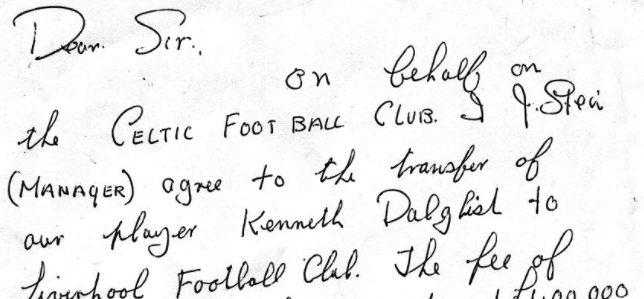 Dear. Sir.,
on behalf on
the CELTIC FOOT BALL CLUB. I J. Stein
(MANAGER) agree to the transfer of
our player Kenneth Dalglish to
Liverpool Football Club. The fee of